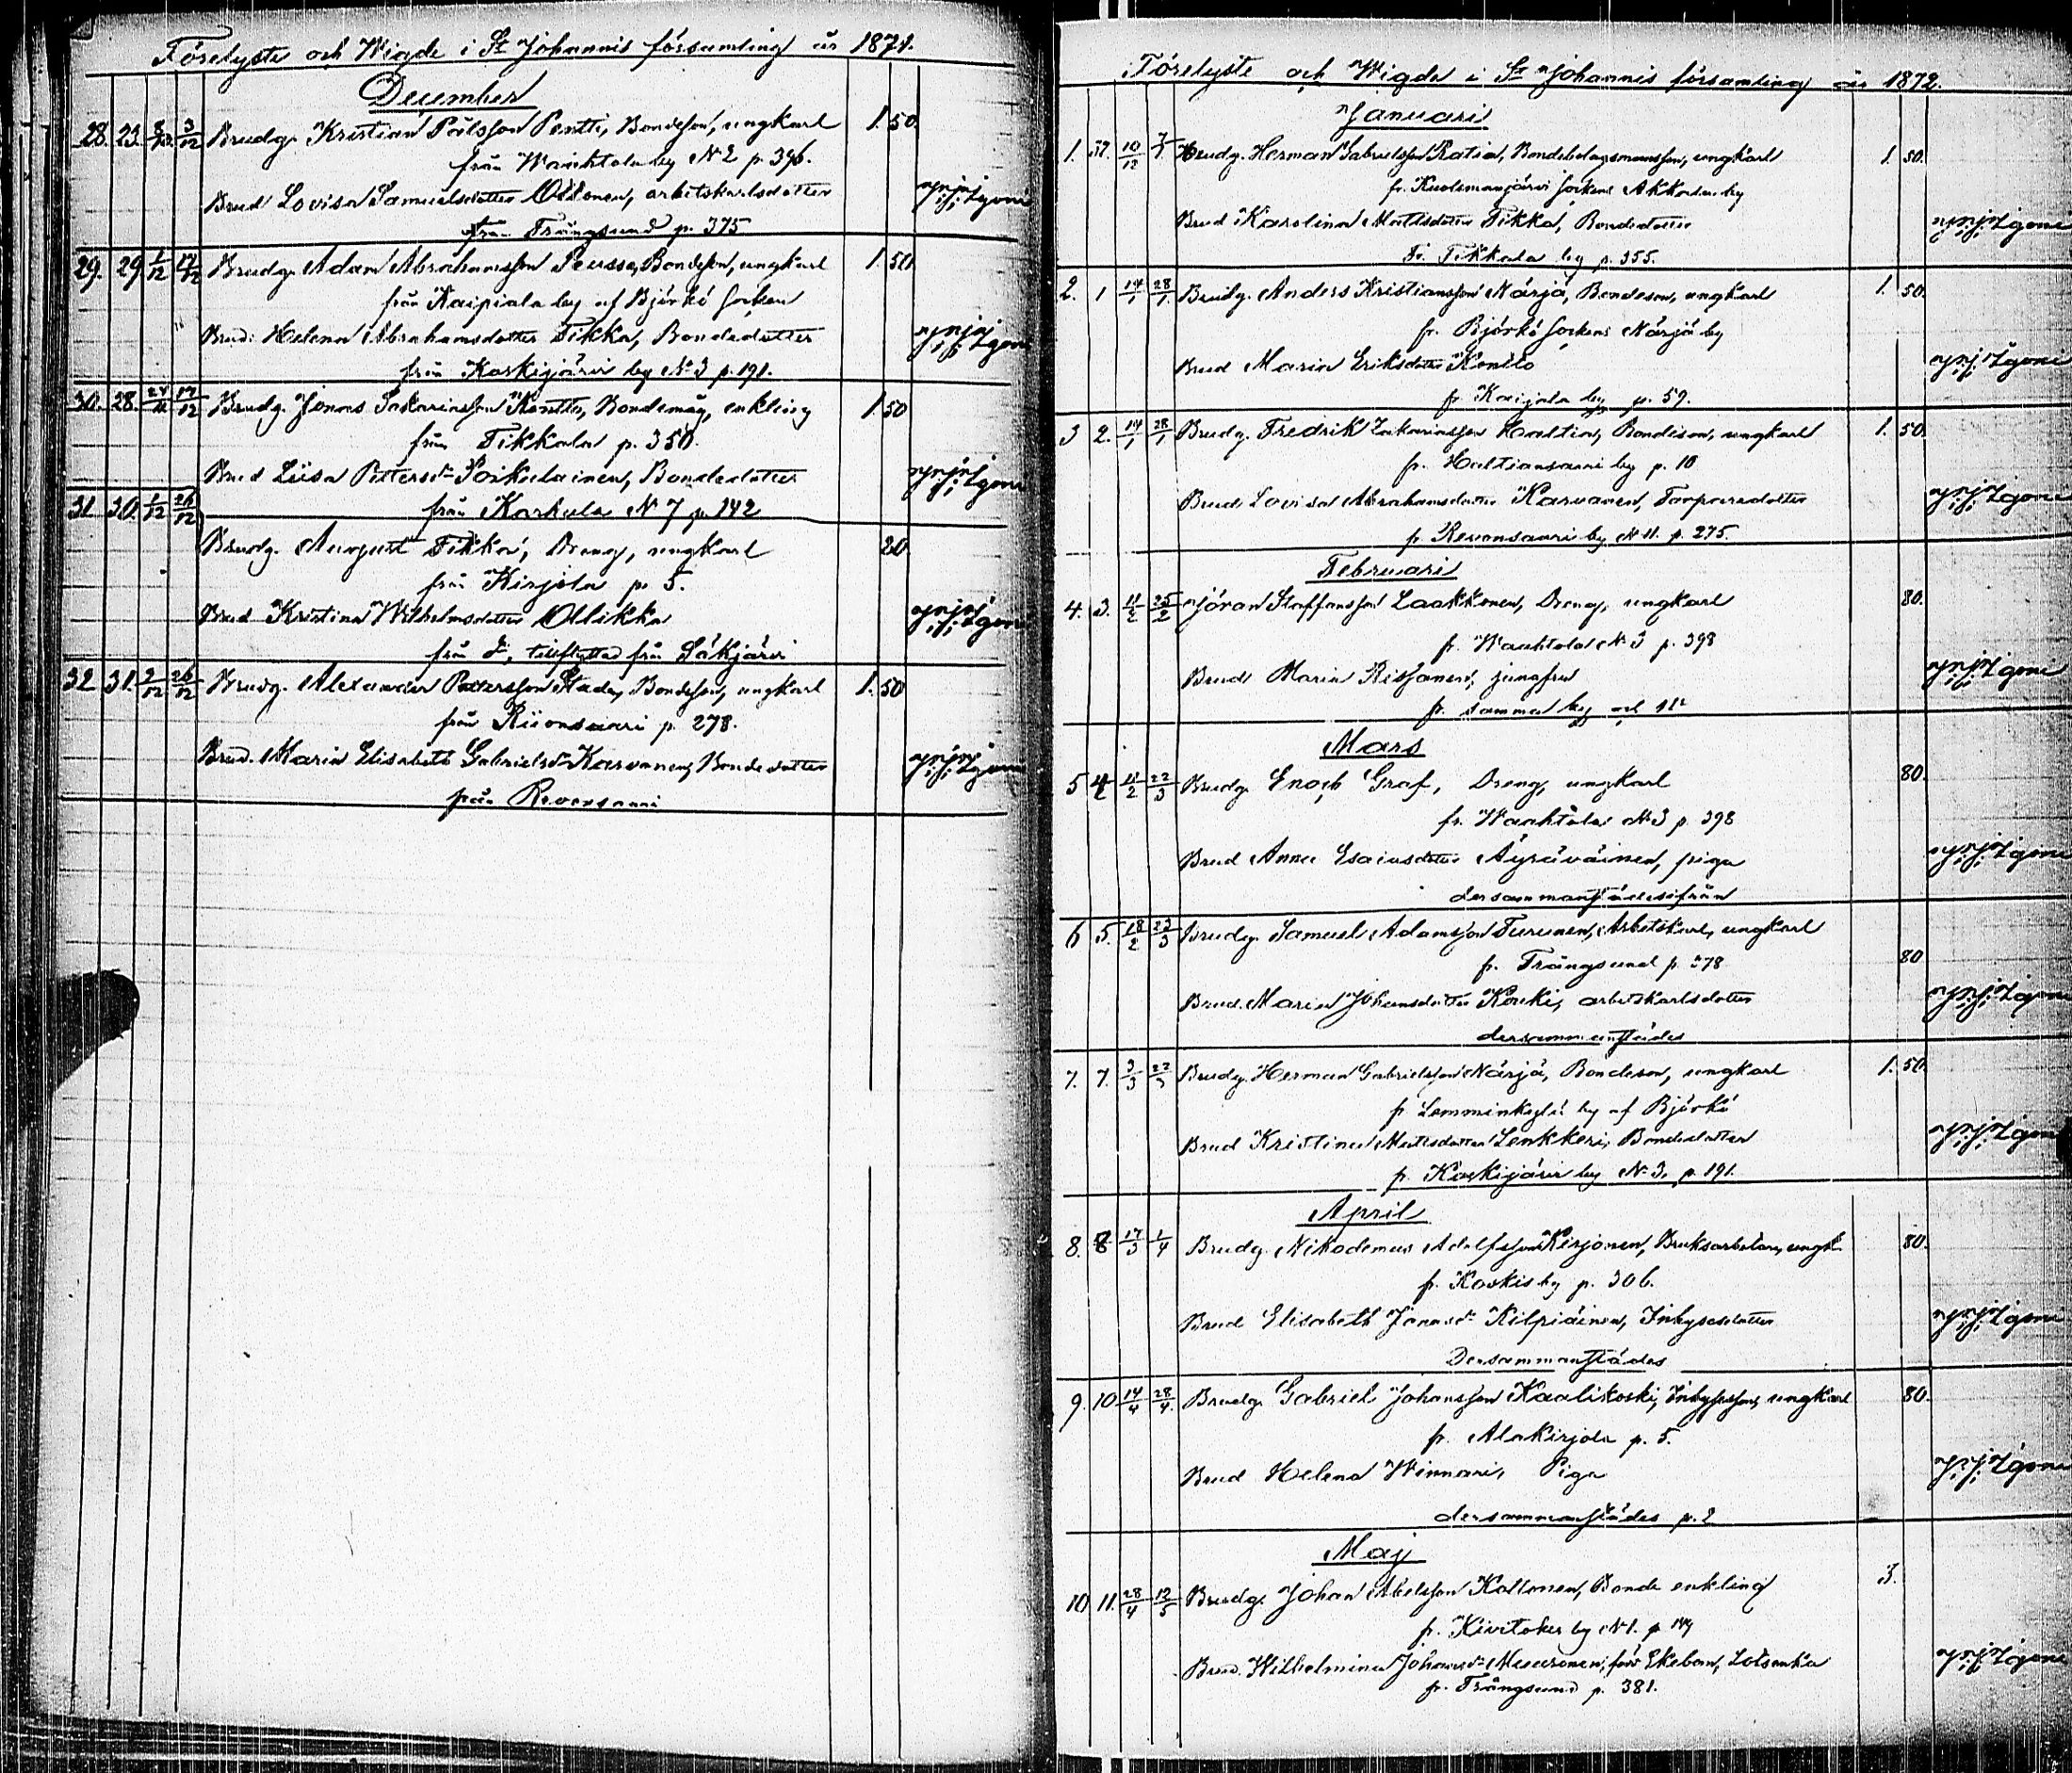 Förelyste och Wigde i St Johannis församling år 1871.
December
28. 23. 3/12 Brudg. Kristian Pålsson Pentti, Bondeson, ungkarl 1. 50.
från Waahtola by N 2 p. 396.
Brud Lovisa Samuelsdotter Ottonen, arbetskarlsdotter
från Trångsund p. 375
29. 29 1/12 17/12 Brudg. Adam Abrahamsson Peussa, Bondeson, ungkarl 1. 50.
från Kaipiala by af Björkö socken
Brud: Helena Abrahamsdotter Tikka, Bondedotter
från Koskijärvi by N 3 p. 191.
30. 28. 27/11 17/12 Brudg. Jonas Sakariasson Kontto, Bondemåg, enkling 1. 50
från Tikkala p. 350.
Brud Liisa Pettersdr Poikulainen, Bondedotter
från Karhula N 7 p. 142
31 30. 1/12 26/12
Brudg. August Tikka, Dreng, ungkarl 20.
från Kirjola p. 5.
Brud Kristina Wilhelmsdotter Ollikka
från Do, tillflyttad från Säkjärvi
32 31. 2/12 26/12 Brudg. Alexander Pettersson Stude, Bondeson, ungkarl 1. 50
från Riionsaari p. 278.
Brud. Maria Elisabeth Gabrielsdr Karvanen, Bondedotter
från Revonsaari
Förelyste och Wigda i St Johannis församling år 1872.
Januari
1. 32. 10/12 7/1 Brudg. Herman Gabrielsson Ratia, Bondebolagsmansson, ungkarl 1. 50.
fr. Kuolemanjärvi sockens Akkala by
Brud Karolina Mattsdotter Tikka, Bondedotter
fr. Tikkala by p. 355.
2. 1 14/1 28/1 Brudg. Anders Kristiansson Närjä, Bondeson, ungkarl 1. 50.
fr. Björkö sockens Närjä by
Brud Maria Eriksdotter Kontto
fr. Kaijala by p. 59.
3 2. 14/1 28/1 Brudg. Fredrik Zakariasson Haltia, Bondeson, ungkarl 1. 50.
fr. Haltiansaari by p. 10
Brud Lovisa Abrahamsdotter Karvanen, Torparedotter
fr. Revonsaari by N 11. p. 275.
Februari
4. 3. 11/2 25/2 Jöran Staffansson Laakkonen, Dreng, ungkarl 80.
fr. Waahtola N 3 p. 398
Brud Maria Rissanen, jungfru
fr. samma by och No
Mars
5 4 11/2 22/3 Brudg. Enoch Graf, Dreng, ungkarl 80.
fr. Waahtola N 3 p. 398
Brud Anna Esaiasdotter Äyräväinen, piga
dersammastädesifrån
6 5. 18/2 23/3 Brudg. Samuel Adamsson Turunen, Arbetskarl, ungkarl
fr. Trångsund p. 378 80
Brud. Maria Johansdotter Kouki, arbetskarlsdotter
dersammastädes
7. 7. 3/3 22/3 Brudg. Herman Gabrielsson Närjä, Bondeson, ungkarl 1. 50.
fr. by af Björkö
Brud Kristina Mattsdotter Lenkkeri, Bondedotter
fr. Koskijärvi by N 3, p. 191.
April
8. 8 17/3 1/4 Brudg. Nikodemus Adolfsson Kirjonen, Bruksarbetare, ungk. 80.
fr. Koskis by p. 306.
Brud Elisabeth Jonasdr Kilpiäinen, Inhysesdotter
Dersammastädes
9. 10 14/4 28/4. Brudg. Gabriel Johansson Kaalikoski, Inhysesson, ungkarl 80.
fr. Alakirjola p. 5.
Brud Helena Winnari, Piga
dersammastädes p. 2
Maj
10 11. 28/4 12/5 Brudg. Johan Abelsson Kottonen, Bonde enkling 3.
fr. Kivitokee by N 1. p. 144
Brud. Wilhelmina Johansdr Muuronen, förr Ekebom, Lotsenka
fr. Trångsund p. 381.